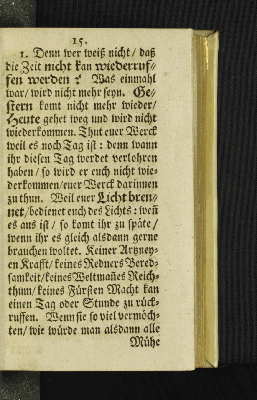 15.
1. Denn wer weiß nicht / daß
die Zeit nicht kan wiederruf-
fen werden? Was einmahl
war / wird nicht mehr seyn. Ge-
stern komt nicht mehr wieder /
Heute gehet weg und wird nicht
wiederkommen. Thut euer Werck
weil es noch Tag ist: denn wann
ihr diesen Tag werdet verlohren
haben / so wird er euch nicht wie-
derkommen / euer Werck darinnen
zu thun. Weil euer Licht bren-
net / bedienet euch des Lichts: weñ
es aus ist / so komt ihr zu späte /
wenn ihr es gleich alsdann gerne
brauchen woltet. Keiner Artzney-
en Krafft / keines Redners Bered-
samkeit / keines Weltmañes Reich-
thum / keines Fürsten Macht kan
einen Tag oder Stunde zu rück-
ruffen. Wenn sie so viel vermöch-
ten / wie würde man alsdann alle
Mühe